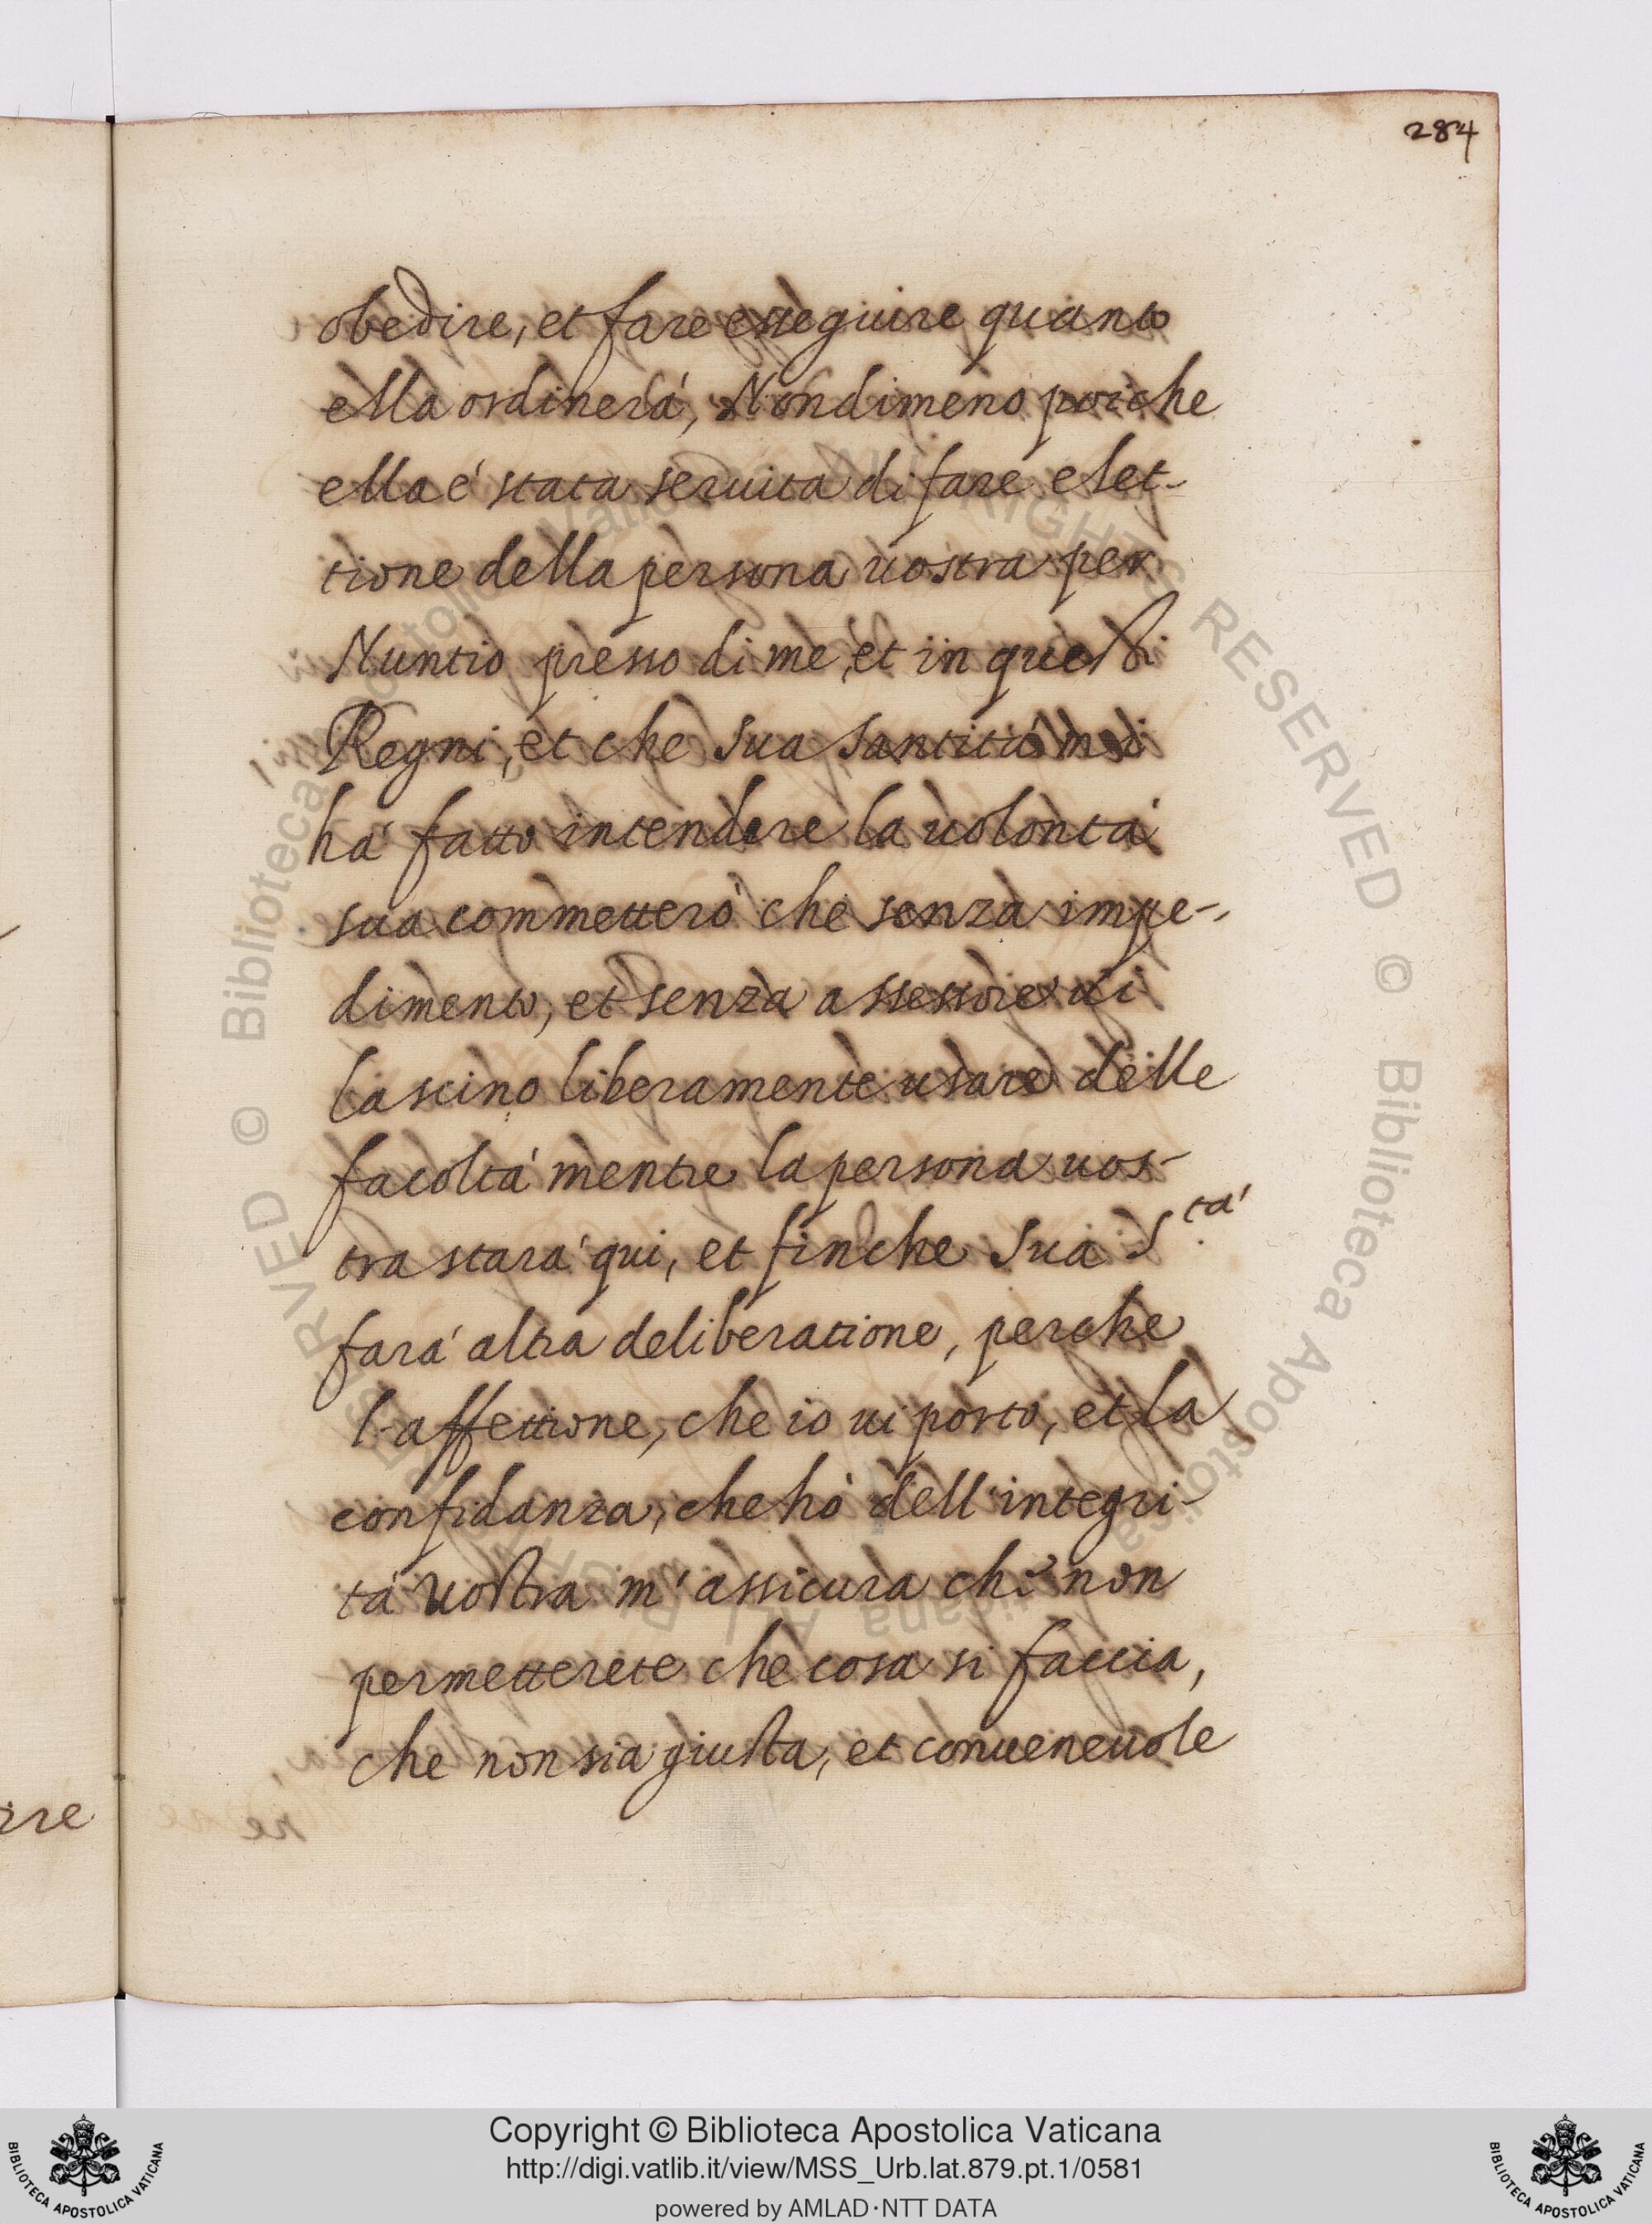 284
obedire, et fare esseguire quanto
ella ordinerá, Nondimeno poiche
ella é stata seruita di fare elet-
tione della persona uostra per
Nuntio presso di me, et in questi
Regni, et che sua santitá
há fatto intendere la uolontá
sua commetteró che senza impe-
dimento, et senza assessore ui
lascino liberamente usare delle
facoltá mentre la persona uos-
tra stará qui, et finche sua S.tá
fará altra deliberatione, perche
l'affettione, che io ui porto, et la
confidanza, che hó dell'integri-
tá uostra m'assicura che non
permetterete che cosa si faccia,
che non sia giusta, et conueneuole
ire
© Biblioteca Apostolica Vaticana ALL RIGHTS RESERVED © Biblioteca Apostolica Vaticana ALL RIGHTS RESERVED
Copyright © Biblioteca Apostolica Vaticana
http://digi.vatlib.it/view/MSS_Urb.lat.879.pt.1/0581
powered by AMLAD·NTT DATA
BIBLIOTECA APOSTOLICA VATICANA
BIBLIOTECA APOSTOLICA VATICANA